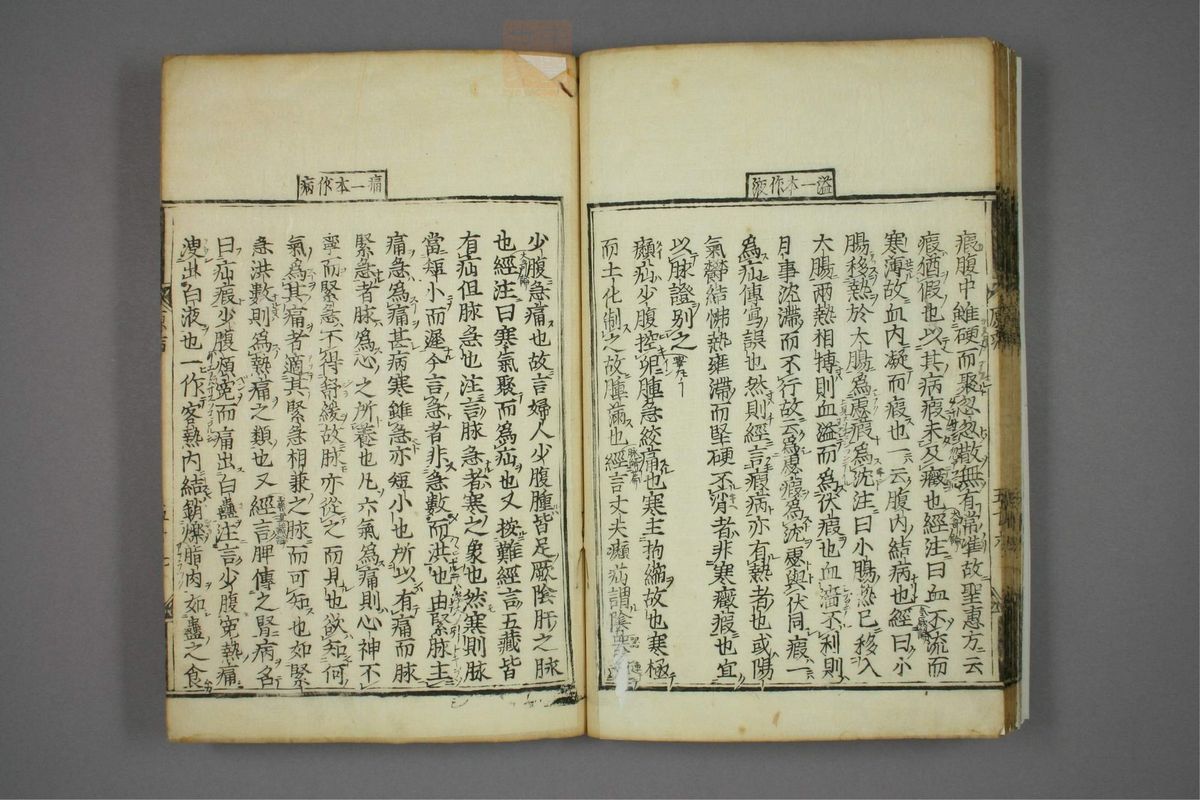 溢一本作液
瘕腹中雖硬而聚忽散無有常準故聖惠方云
瘕猶假也以其病瘕未及癥也經注曰血不流而
寒薄故血内凝而瘕也一云腹内結病也經曰小
腸移熱於大腸為虙瘕為沈注曰小腸熱已移入
大腸兩熱相搏則血溢而為伏瘕也血濇不利則
月事沈滯而不行故云為虙瘕為沈虙與伏同瘕一
為疝傳寫誤也然則經言瘕病亦有熱者也或陽
氣鬱結怫熱壅滯而堅硬不消者非寒癥瘕也宜
以脉證別之
㿗疝少腹控卵腫急絞痛也寒主拘縮故也寒極
而土化制之故腫滿也經言丈夫㿗疝謂陰器
痛一本作病
少腹急痛也故言婦人少腹腫皆足厥陰肝之脉
也經注曰寒氣聚而為疝也又按難經言五藏皆
有疝但脉急也注言脉急者寒之象也然寒則脉
當短小而遲今言急者非急數而洪也由緊脉主
痛急為痛甚病寒雖急亦短小也所以有痛而脉
緊急者脉為心之所養也凡六氣為痛則心神不
寧而緊急不得舒緩故脉亦從之而見也欲知何
氣為其痛者適其緊急相兼之脉而可知也如緊
急洪數則為熱痛之類也又經言脾傳之腎病名
曰疝瘕少腹煩寃而痛出白蠱注言少腹寃熱痛
溲出白液也一作客熱内結銷爍脂肉如蠱之食